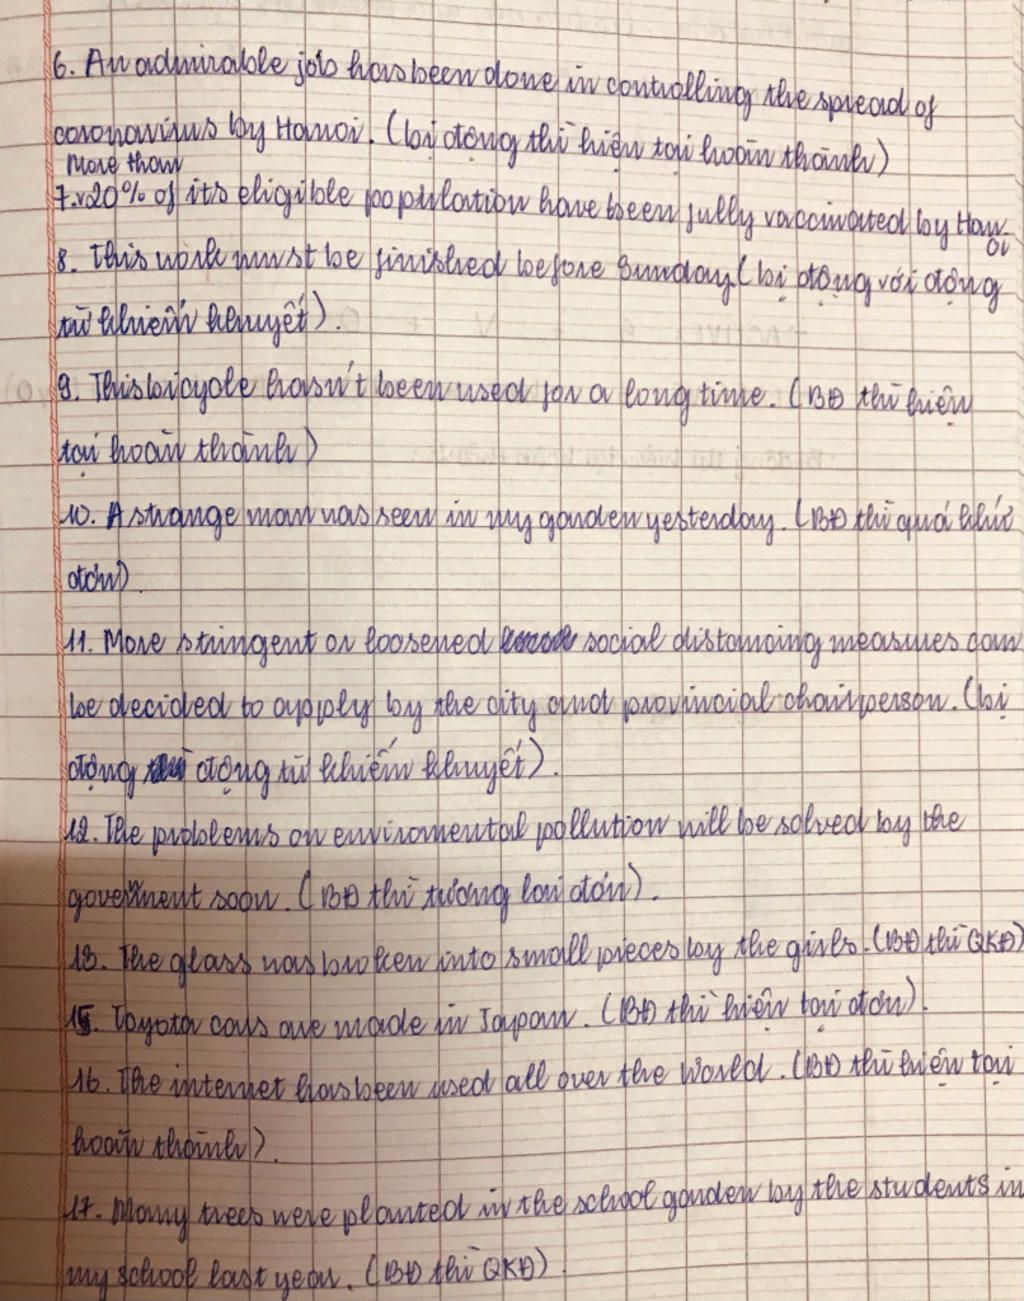 6. An admirable job has been done in controlling the spread of
coronavirus by Hanoi. (bị động thì hiện tại hoàn thành)
More than
7.v20% of its eligible population have been fully vaccinated by Han
oi
8. This work must be finished before Sunday. (bị động với động
từ khiếm khuyết).
9. This bicycle hasn't been used for a long time. (BĐ thì hiện
tại hoàn thành)
10. A strange man was seen in my garden yesterday. (BĐ thì quá khứ
đơn)
11. More stringent or loosened social distancing measures can
be decided to apply by the city and provincial chairperson. (bị
động động từ khiếm khuyết).
12. The problems on enviromental pollution will be solved by the
government soon. (BĐ thì tương lai đơn).
13. The glass was broken into small pieces by the girls. (BĐ thì QKĐ)
15. Toyota cars are made in Japan. (BĐ thì hiện tại đơn).
16. The internet has been used all over the World. (BĐ thì hiện tại
hoàn thành).
17. Many trees were planted in the school garden by the students in
my school last year. (BĐ thì QKĐ).